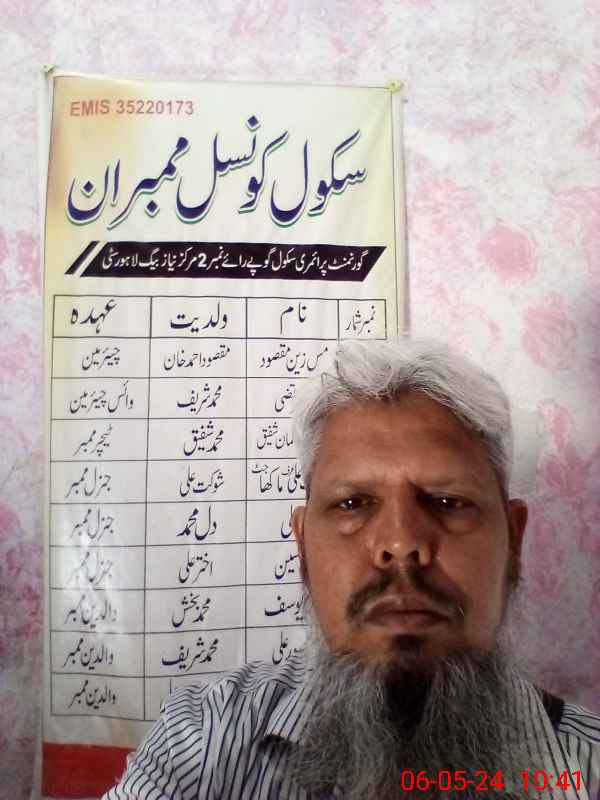 EMIS 35220173
سکول کونسل ممبران
گورنمنٹ پرائمری سکول گوپے رائے نمبر 2 مرکز نیاز بیگ لاہور سٹی
نمبر شمار نام ولدیت عہدہ
مس زین مقصود مقصود احمد خان چیئرمین
محمد شریف وائس چیئرمین
شفیق محمد شفیق ٹیچر ممبر
شوکت علی جنرل ممبر
دل محمد جنرل ممبر
اختر علی جنرل ممبر
یوسف محمد بخش والدین ممبر
علی محمد شریف والدین ممبر
والدین ممبر
06-05-24 10:41